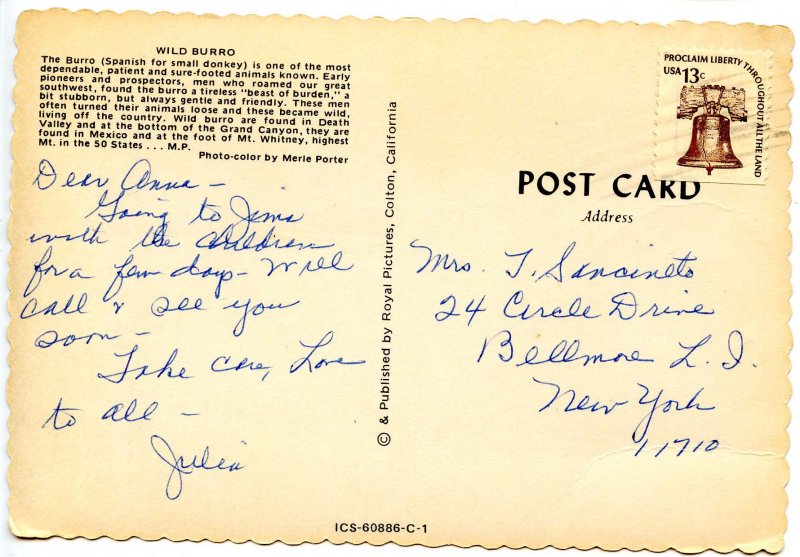 WILD BURRO
The Burro (Spanish for small donkey) is one of the most
dependable, patient and sure-footed animals known. Early
pioneers and prospectors, men who roamed our great
southwest, found the burro a tireless "beast of burden," a
bit stubborn, but always gentle and friendly. These men
often turned their animals loose and these became wild,
living off the country. Wild burro are found in Death
Valley and at the bottom of the Grand Canyon, they are
found in Mexico and at the foot of Mt. Whitney, highest
Mt. in the 50 States . . . M.P.
Photo-color by Merle Porter
Dear Anna -
Going to Jims
with the children
for a few days - Will
call & see you
soon -
Take care, Love
to all -
Julia
© & Published by Royal Pictures, Colton, California
PROCLAIM LIBERTY THROUGHOUT ALL THE LAND
USA 13c
POST CARD
Address
Mrs. T. Sancineto
24 Circle Drive
Bellmore L. I.
New York
11710
ICS-60886-C-1